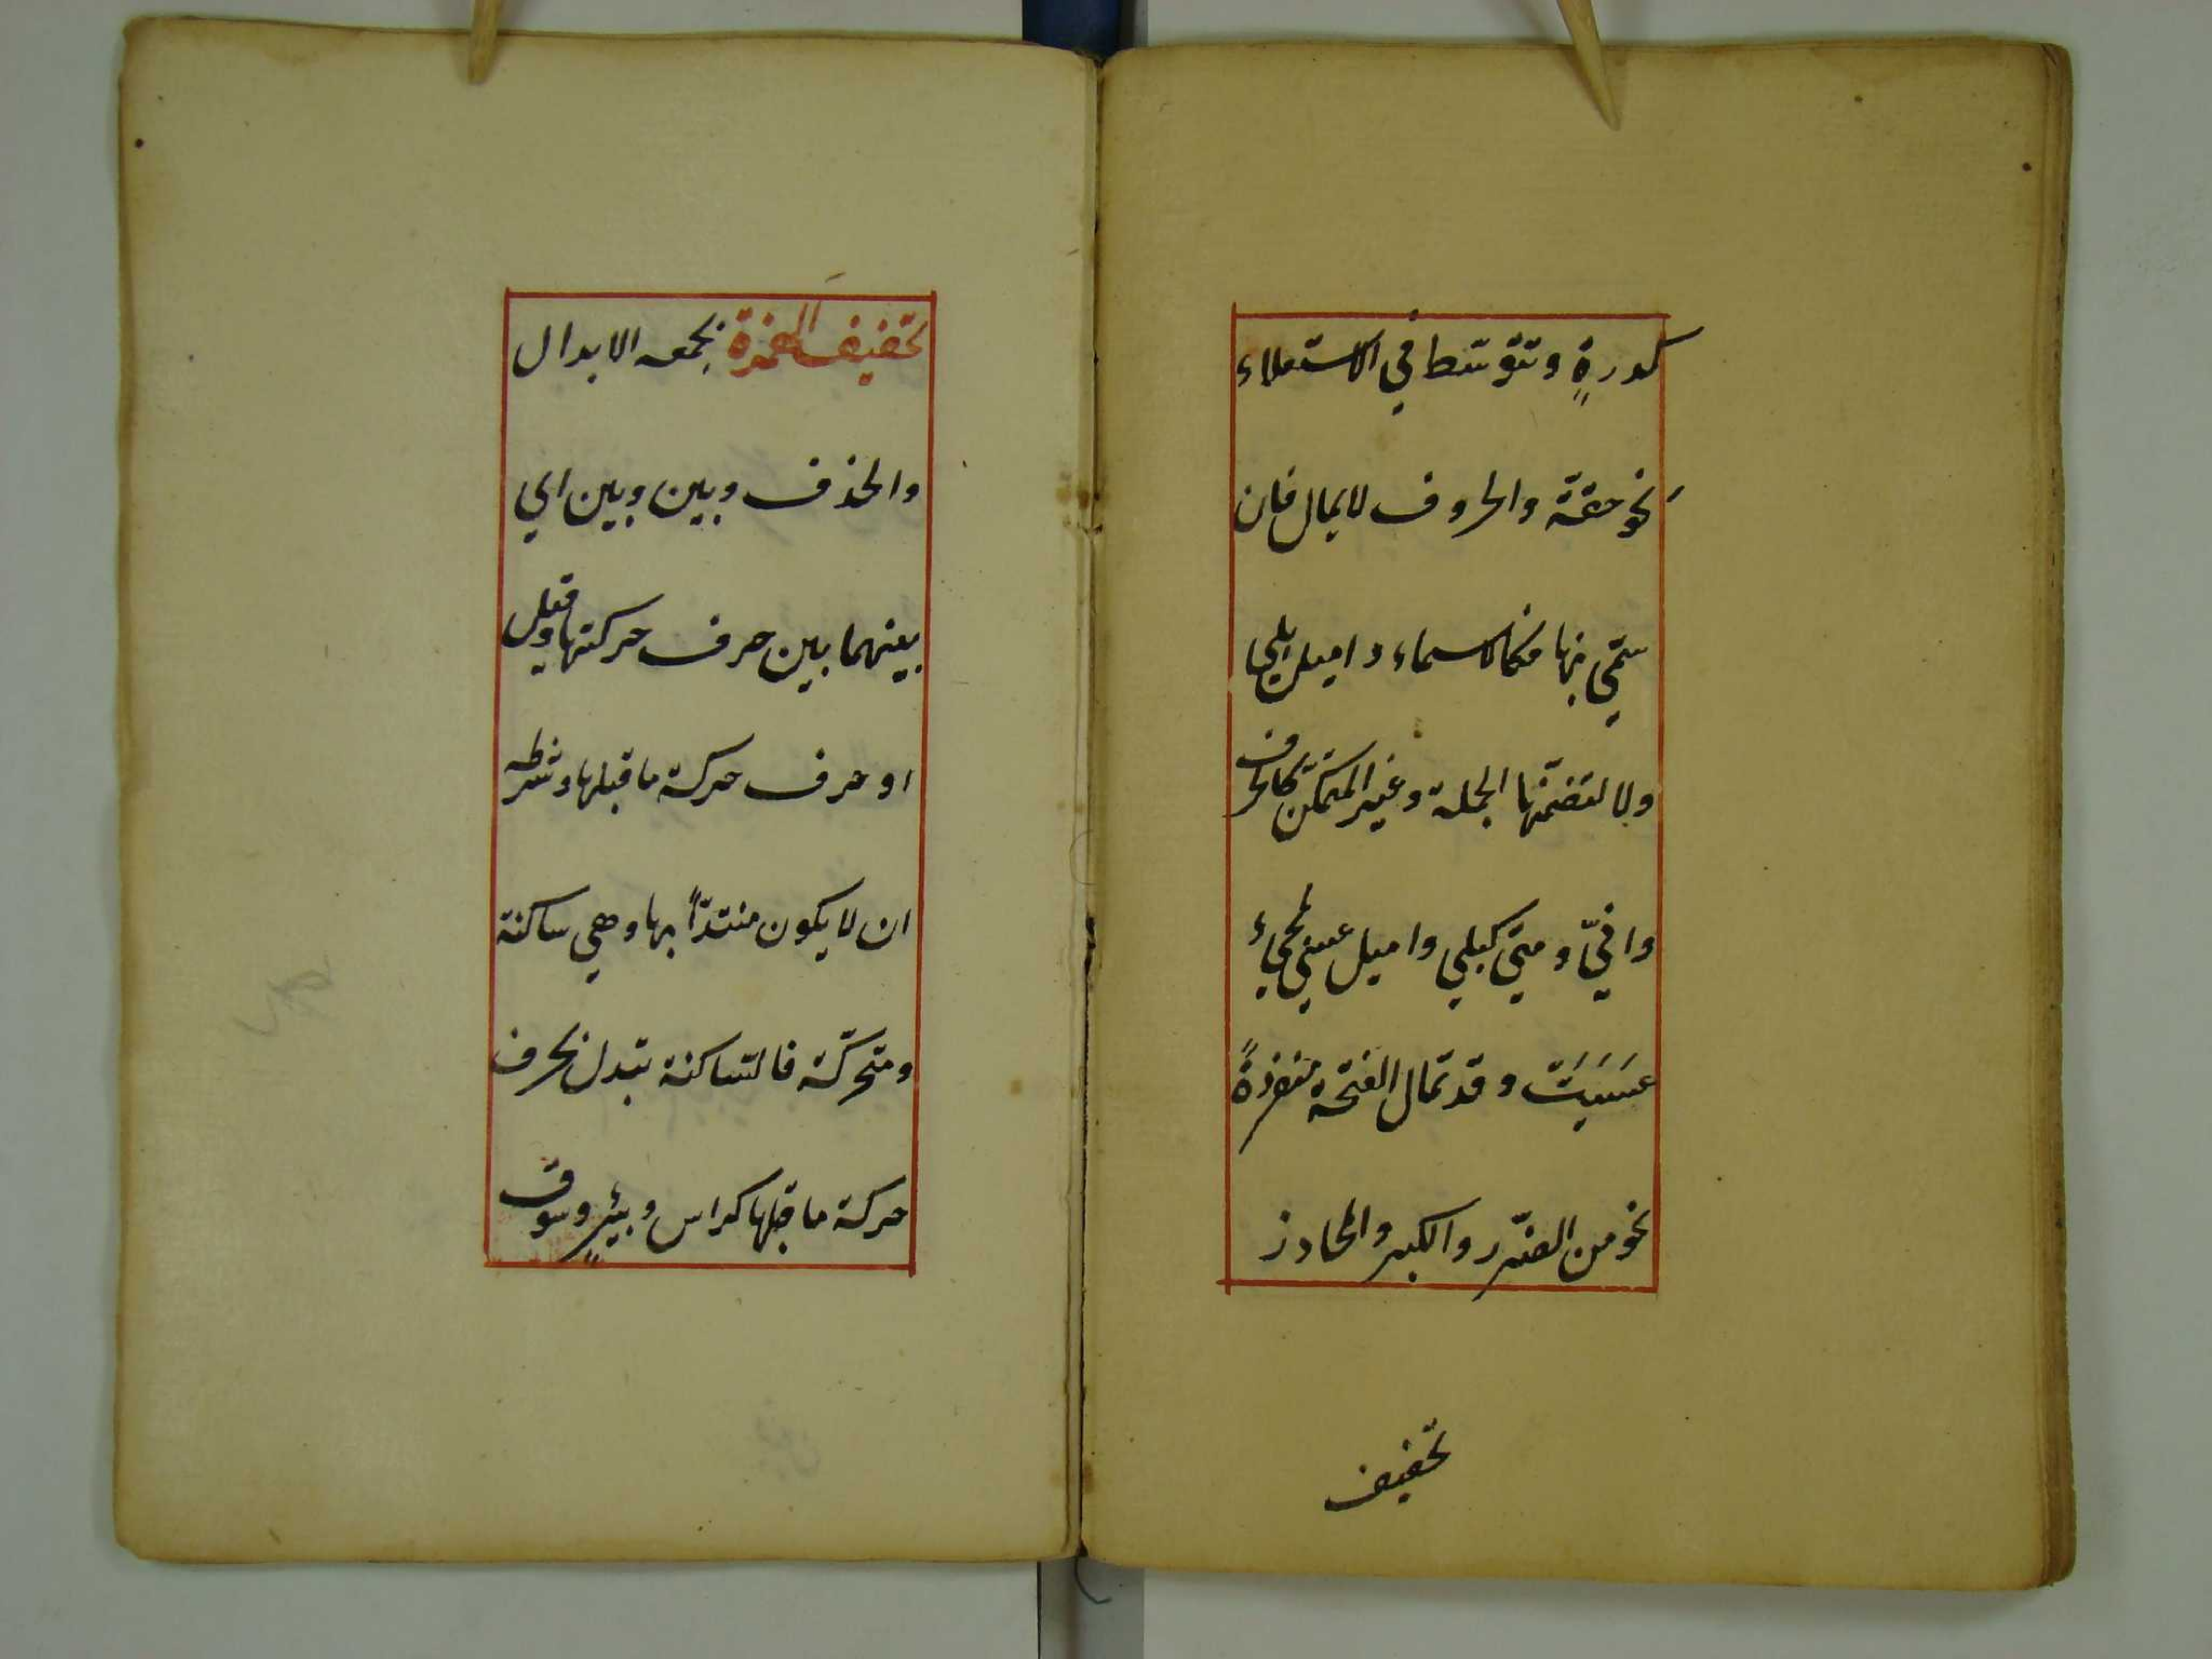 كدورةٍ وتتوسّط في الاستعلاء
نحو حقّة والحروف لا يمال فان
سمّي بها فكالاسماء واميل بلي يا
ولا لتضمّنها الجملة وغير المتمكّن كالحرف
وانّي ومتي كبلي واميل عسي لمجيء
عَسَيَتْ وقد تمال الفتحة منفردةً
نحو من الضّرر والكبر والمحاذر
تخفيف
تخفيف الهمزة يجمعه الابدال
والحذف وبين وبين اي
بينهما بين حرف حركتها وقيل
او حرف حركة ما قبلها وشرطه
ان لا يكون مبتدأً بها وهي ساكنة
ومتحرّكة فالسّاكنة تبدل بحرف
حركة ما قبلها كراس وبئرٍ وسوق